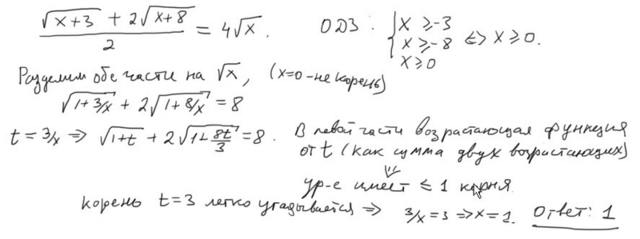 (√(x+3) + 2√(x+8))/2 = 4√x. ОДЗ: { x ≥ -3 x ≥ -8 x ≥ 0 <=> x ≥ 0.
Разделим обе части на √x, (x=0 - не корень)
√(1+3/x) + 2√(1+8/x) = 8
t = 3/x => √(1+t) + 2√(1+8t/3) = 8. В левой части возрастающая функция
от t (как сумма двух возрастающих)
⇓
ур-е имеет ≤ 1 корня
корень t=3 легко угадывается => 3/x = 3 => x = 1. Ответ: 1